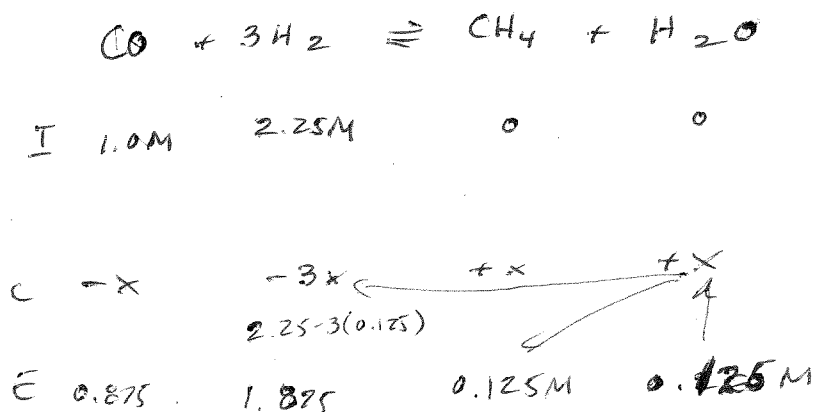 CO + 3H2 ⇌ CH4 + H2O
I 1.0M 2.25M 0 0
C -x -3x +x +x
2.25-3(0.125)
E 0.875 1.875 0.125M 0.125M